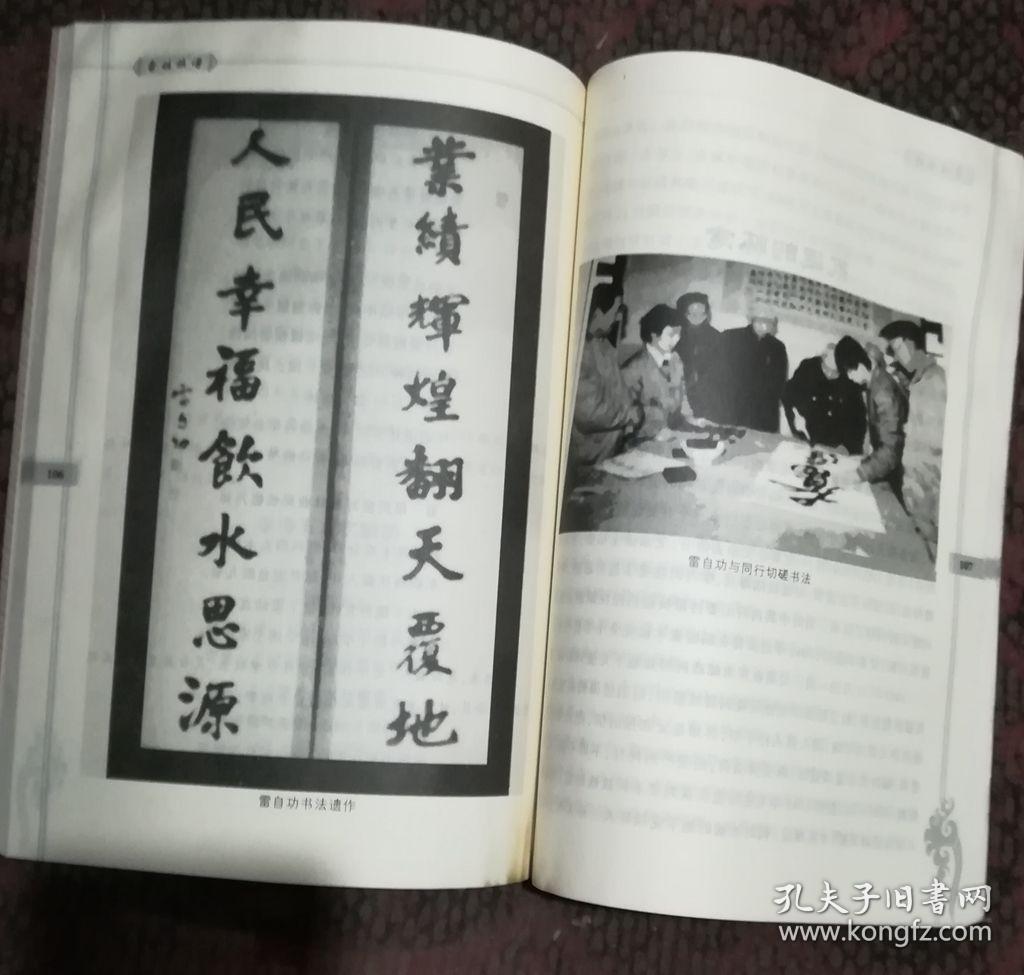 業績輝煌翻天覆地
人民幸福飲水思源
雷自功
雷自功书法遗作
106
雷自功与同行切磋书法
107
孔夫子旧书网
www.kongfz.com